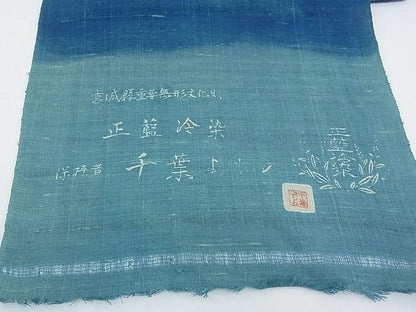 宮城縣重要無形文化財
正藍冷染
保持者 千葉よしの
正藍冷染